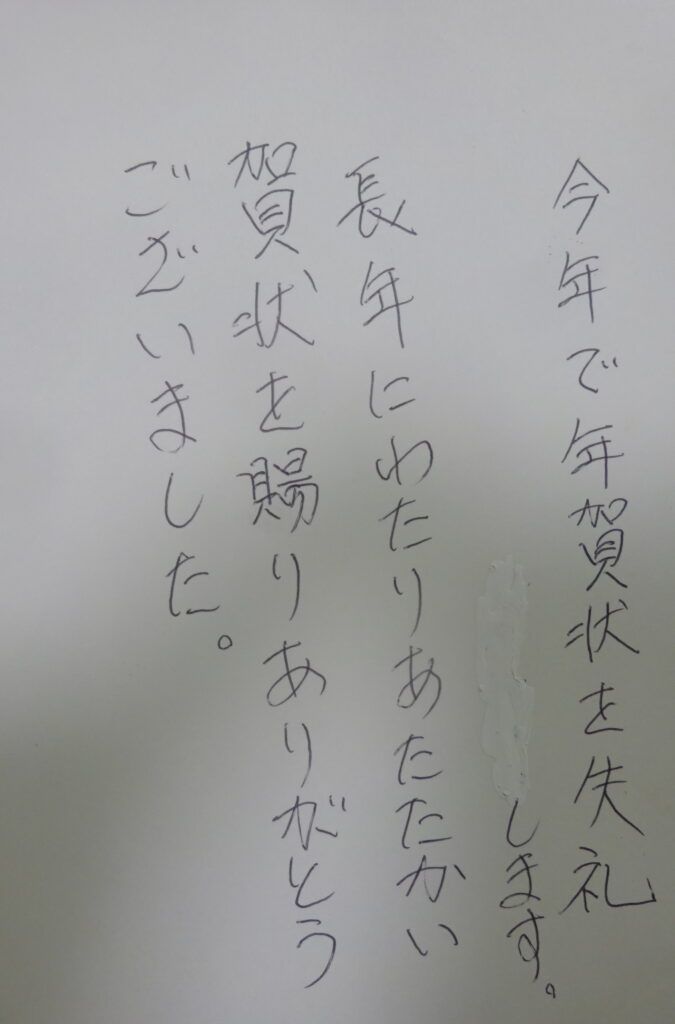 今年で年賀状を失礼
します。
長年にわたりあたたかい
賀状を賜りありがとう
ございました。